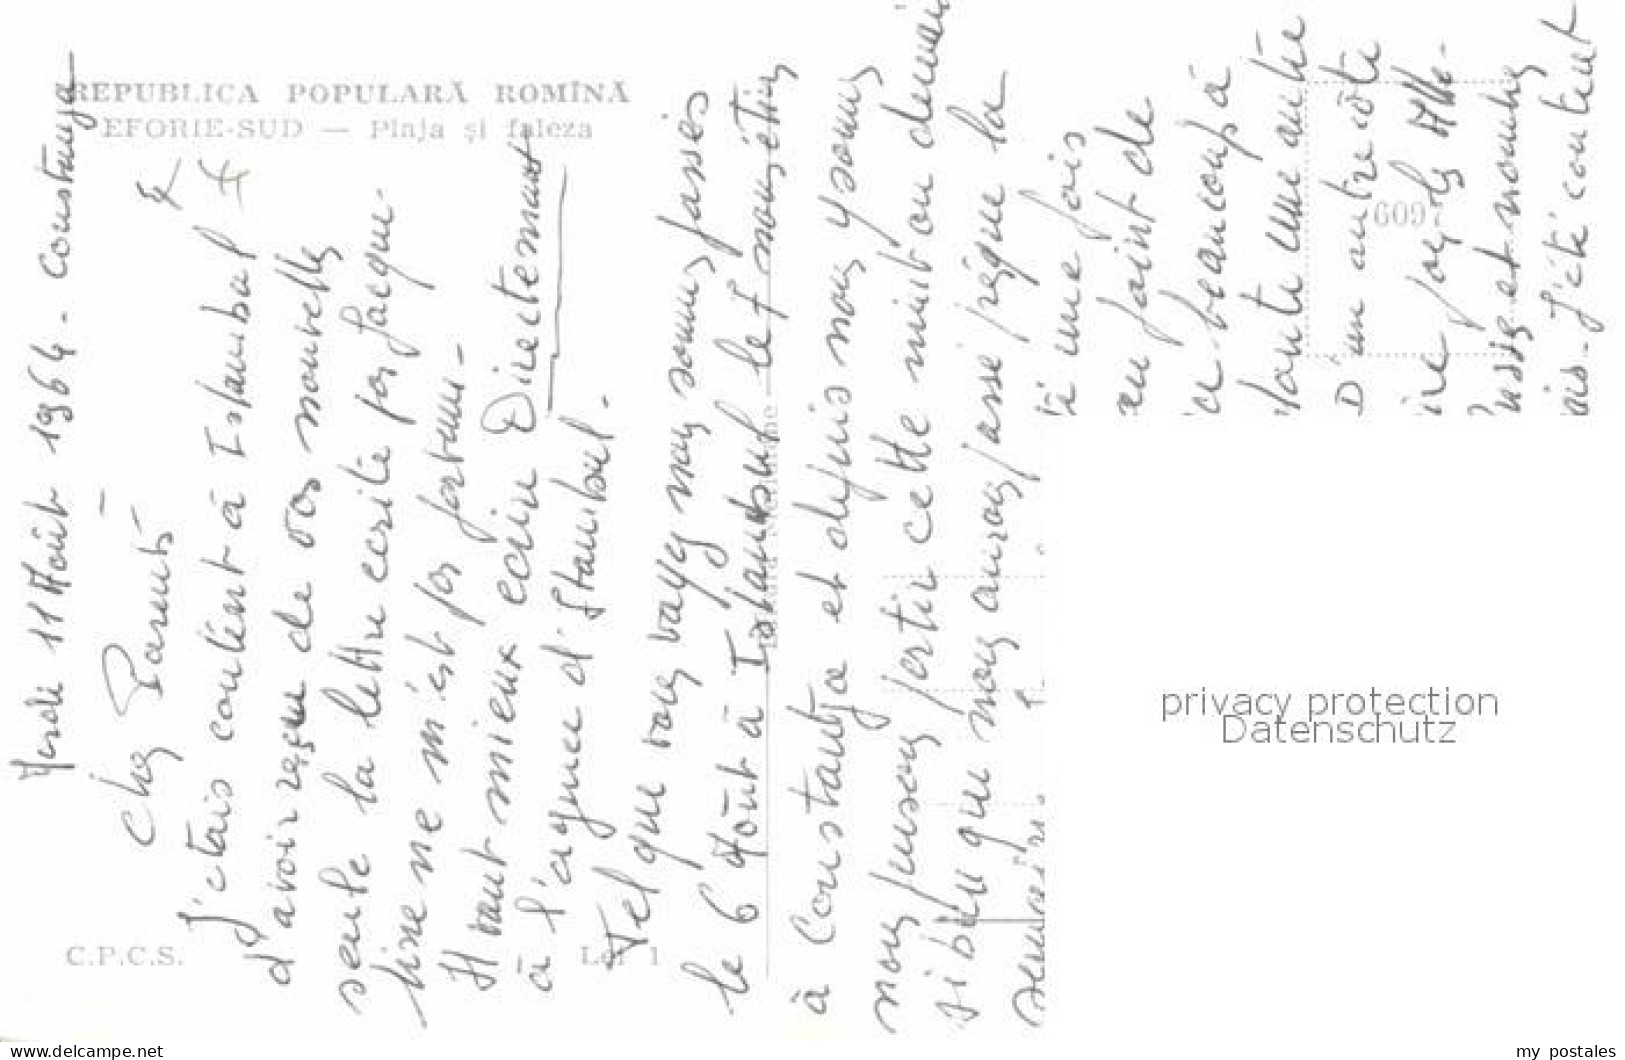 REPUBLICA POPULARĂ ROMÎNĂ
EFORIE-SUD — Plaja și faleza
Mardi 11 Août 1964 - Constanza
Chez Parents
J'étais contént à Istambul
d'avoir reçu de vos nouvelle
seule la lettre ecrite par Jacque-
line ne m'est pas parvenu-
Il vaut mieux ecrire Directement
à l'agence d'Stambul.
Tel que vous voyez nous sommes passés
le 6 Août à Istambul le 7 nous étions
à Constantza et depuis nous y sommes
nous pensons partir cette nuit ou demain
si bien que nous aurons passé presque la
semaine
té une fois
au point de
beaucoup à
une autre
D'un autre côté
et nombre
ais. J'été content
C.P.C.S.
Lei 1
609
privacy protection
Datenschutz
www.delcampe.net
my postales